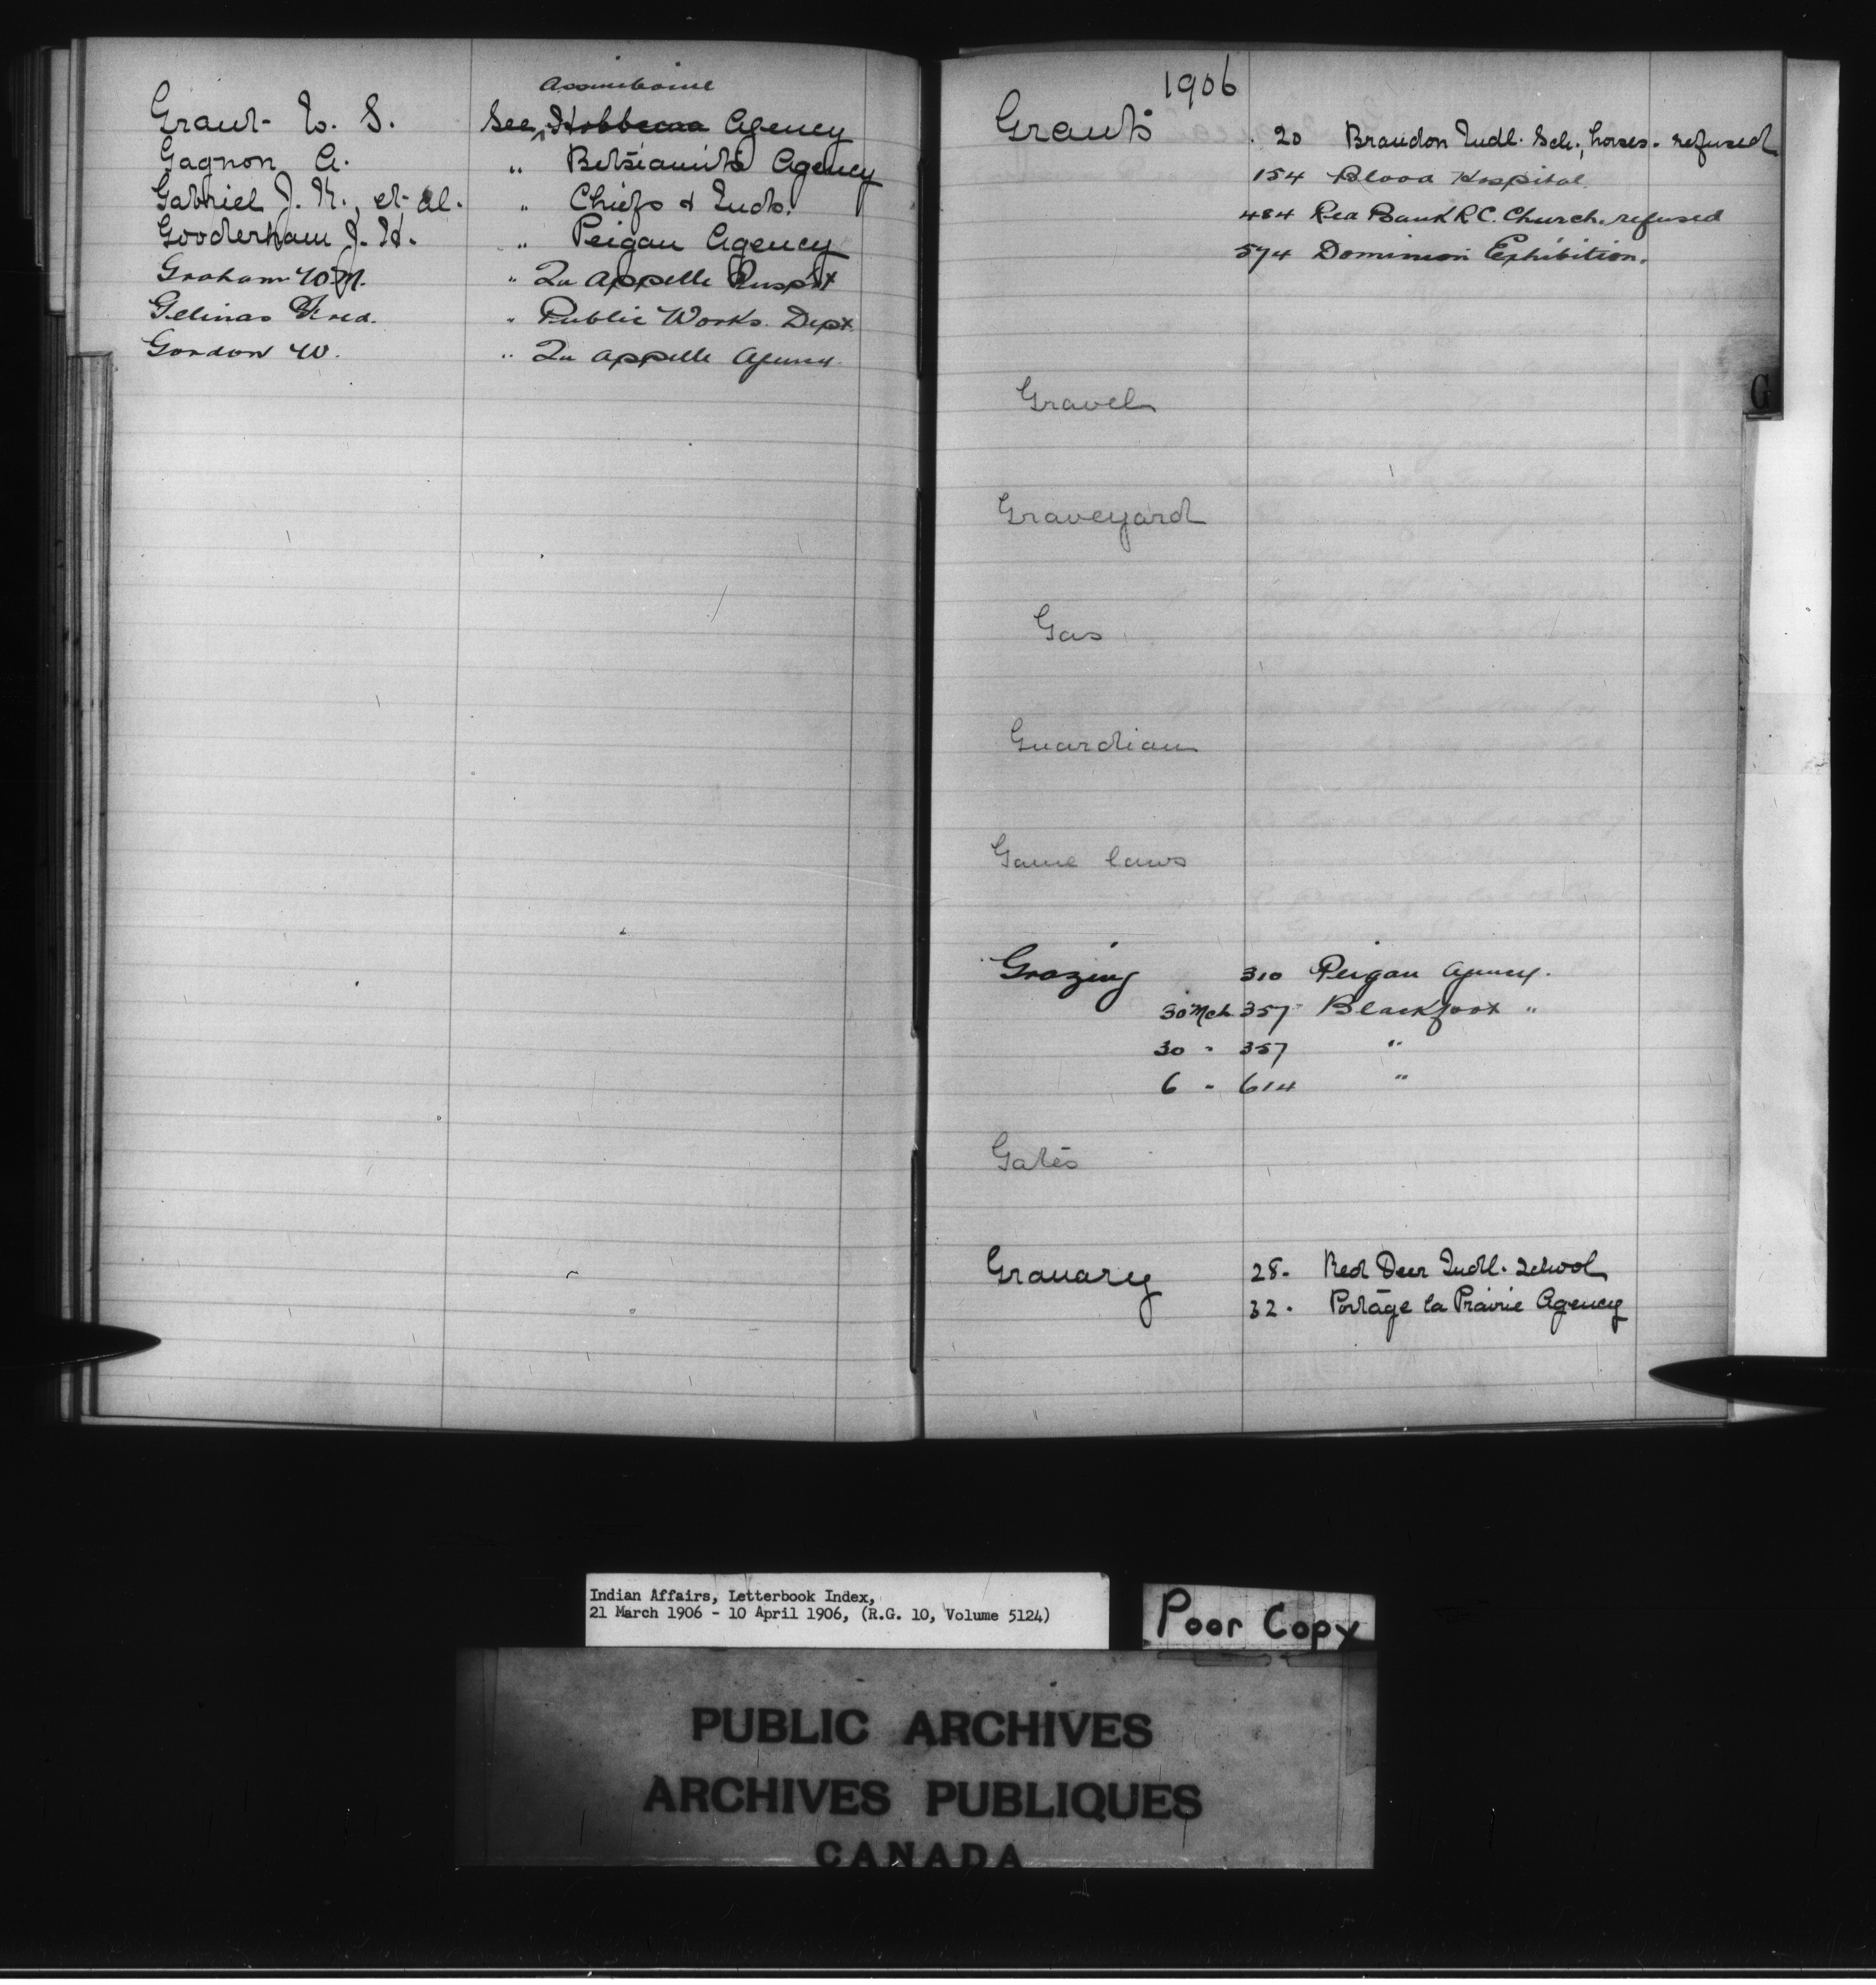 Assiniboine
Grant W. S. See Hobbema Agency
Gagnon A. " Betsiamits Agency
Gabriel J. K., et al. " Chiefs & Inds.
Gooderham J. H. " Peigan Agency
Graham W. M. " Qu Appelle Inspt
Gelinas Fred. " Public Works Dept.
Gordon W. " Qu Appelle Agency.
1906
Grants 20 Brandon Indl. Sch., horses - refused
154 Blood Hospital.
484 Bank R.C. Church. refused
574 Dominion Exhibition.
G
Gravel
Graveyard
Gas
Guardian
Game laws
Grazing 310 Peigan Agency.
30 Mch 357 Blackfoot "
30 " 357 "
6 " 614 "
Gates
Granary 28. Red Deer Indl. School
32. Portage la Prairie Agency
Indian Affairs, Letterbook Index,
21 March 1906 - 10 April 1906, (R.G. 10, Volume 5124)
Poor Copy
PUBLIC ARCHIVES
ARCHIVES PUBLIQUES
CANADA